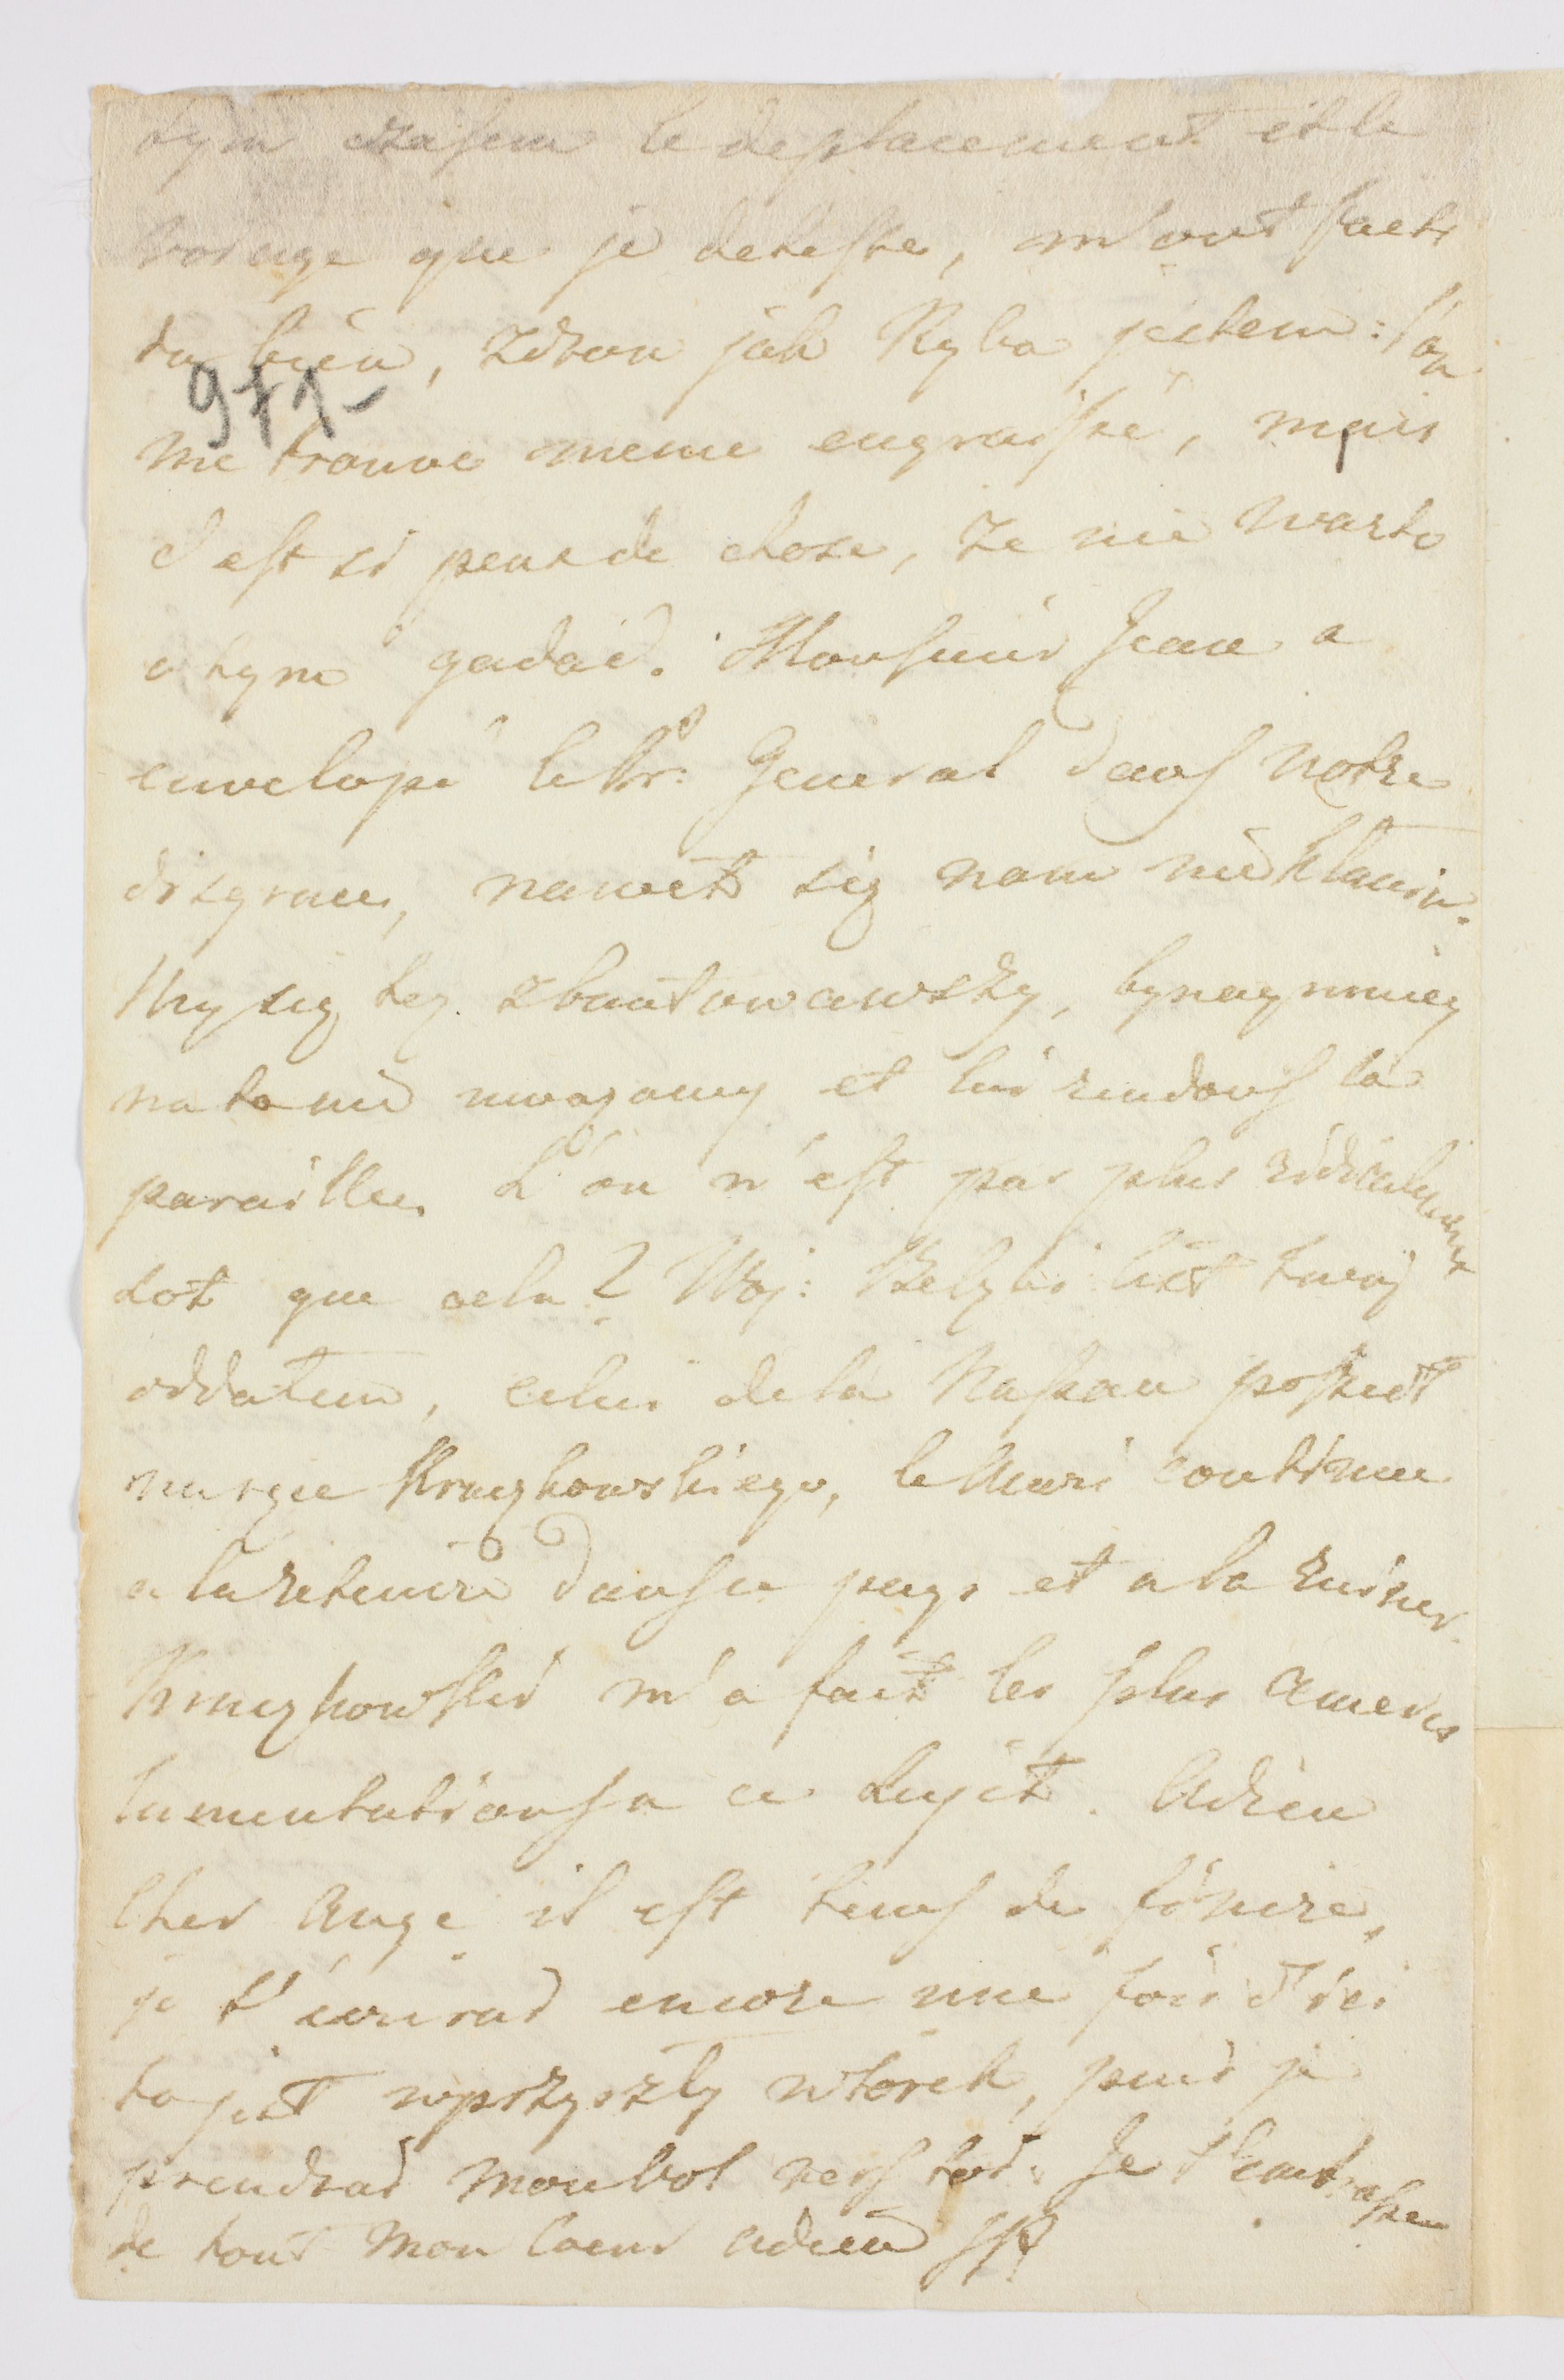 tym czasem le deplacement et le
voiage que je deteste, m'ont faits
du bien, zdrow jak Ryba jestem: l'on
971-
me trouve meme engraissé, mais
c'est si peut de chose, ze nie warto
o tym gadać. Monsieur Jean a
envelopé le Gr: General dans notre
disgrace, nawet się nam nie klania.
My się tez zbuntowawszy, bynaymniey
na to nie uwazamy et lui rendons la
pareille. L'on n'est pas plus ridiculement
sot que cela? Woj: Belzki list twoj
oddałem, celui de la Nassau poszedł
na ręce Kruzkowskiego, le Mari continue
a la retenire dans ce pays et a la ruiner.
Kruzkowski m'a fait les plus ameres
lamentations a ce sujet. Adieu
Cher Ange il est tems de finire,
je t'ecrirai encore une fois d'ici
to jest w przyszly wtorek, puis je
prendrai mon vol vers toi. Je t'embrasse
de tout mon Coeur adieu